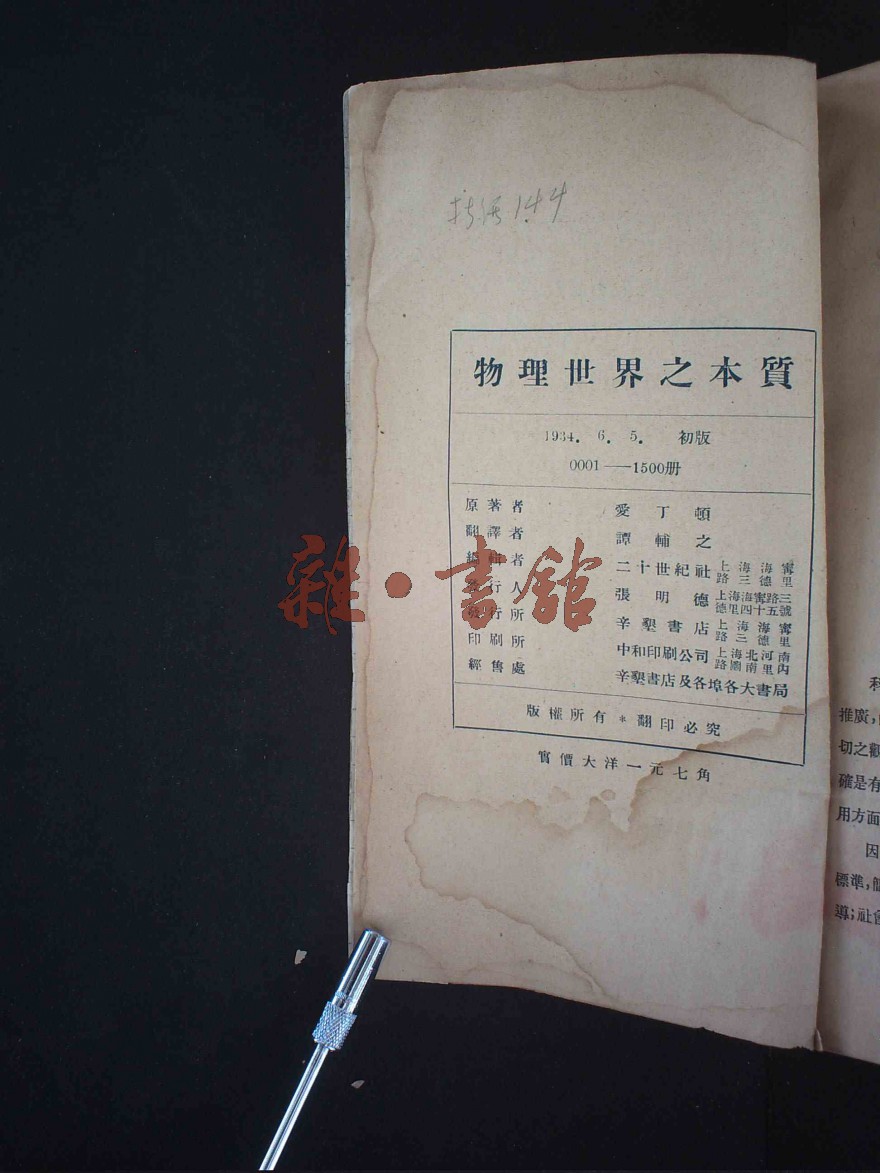 144
物理世界之本質
1934. 6. 5. 初版
0001——1500册
原著者 愛丁頓
翻譯者 譚輔之
編輯者 二十世紀社 上海海寗路三德里
發行人 張明德 上海海寗路三德里四十五號
發行所 辛墾書店 上海海寗路三德里
印刷所 中和印刷公司 上海北河南路圖南里内
經售處 辛墾書店及各埠各大書局
版權所有*翻印必究
實價大洋一元七角
雜·書舘
科
推廣,
切之觀
確是有
用方面
因
標準,
導;社會